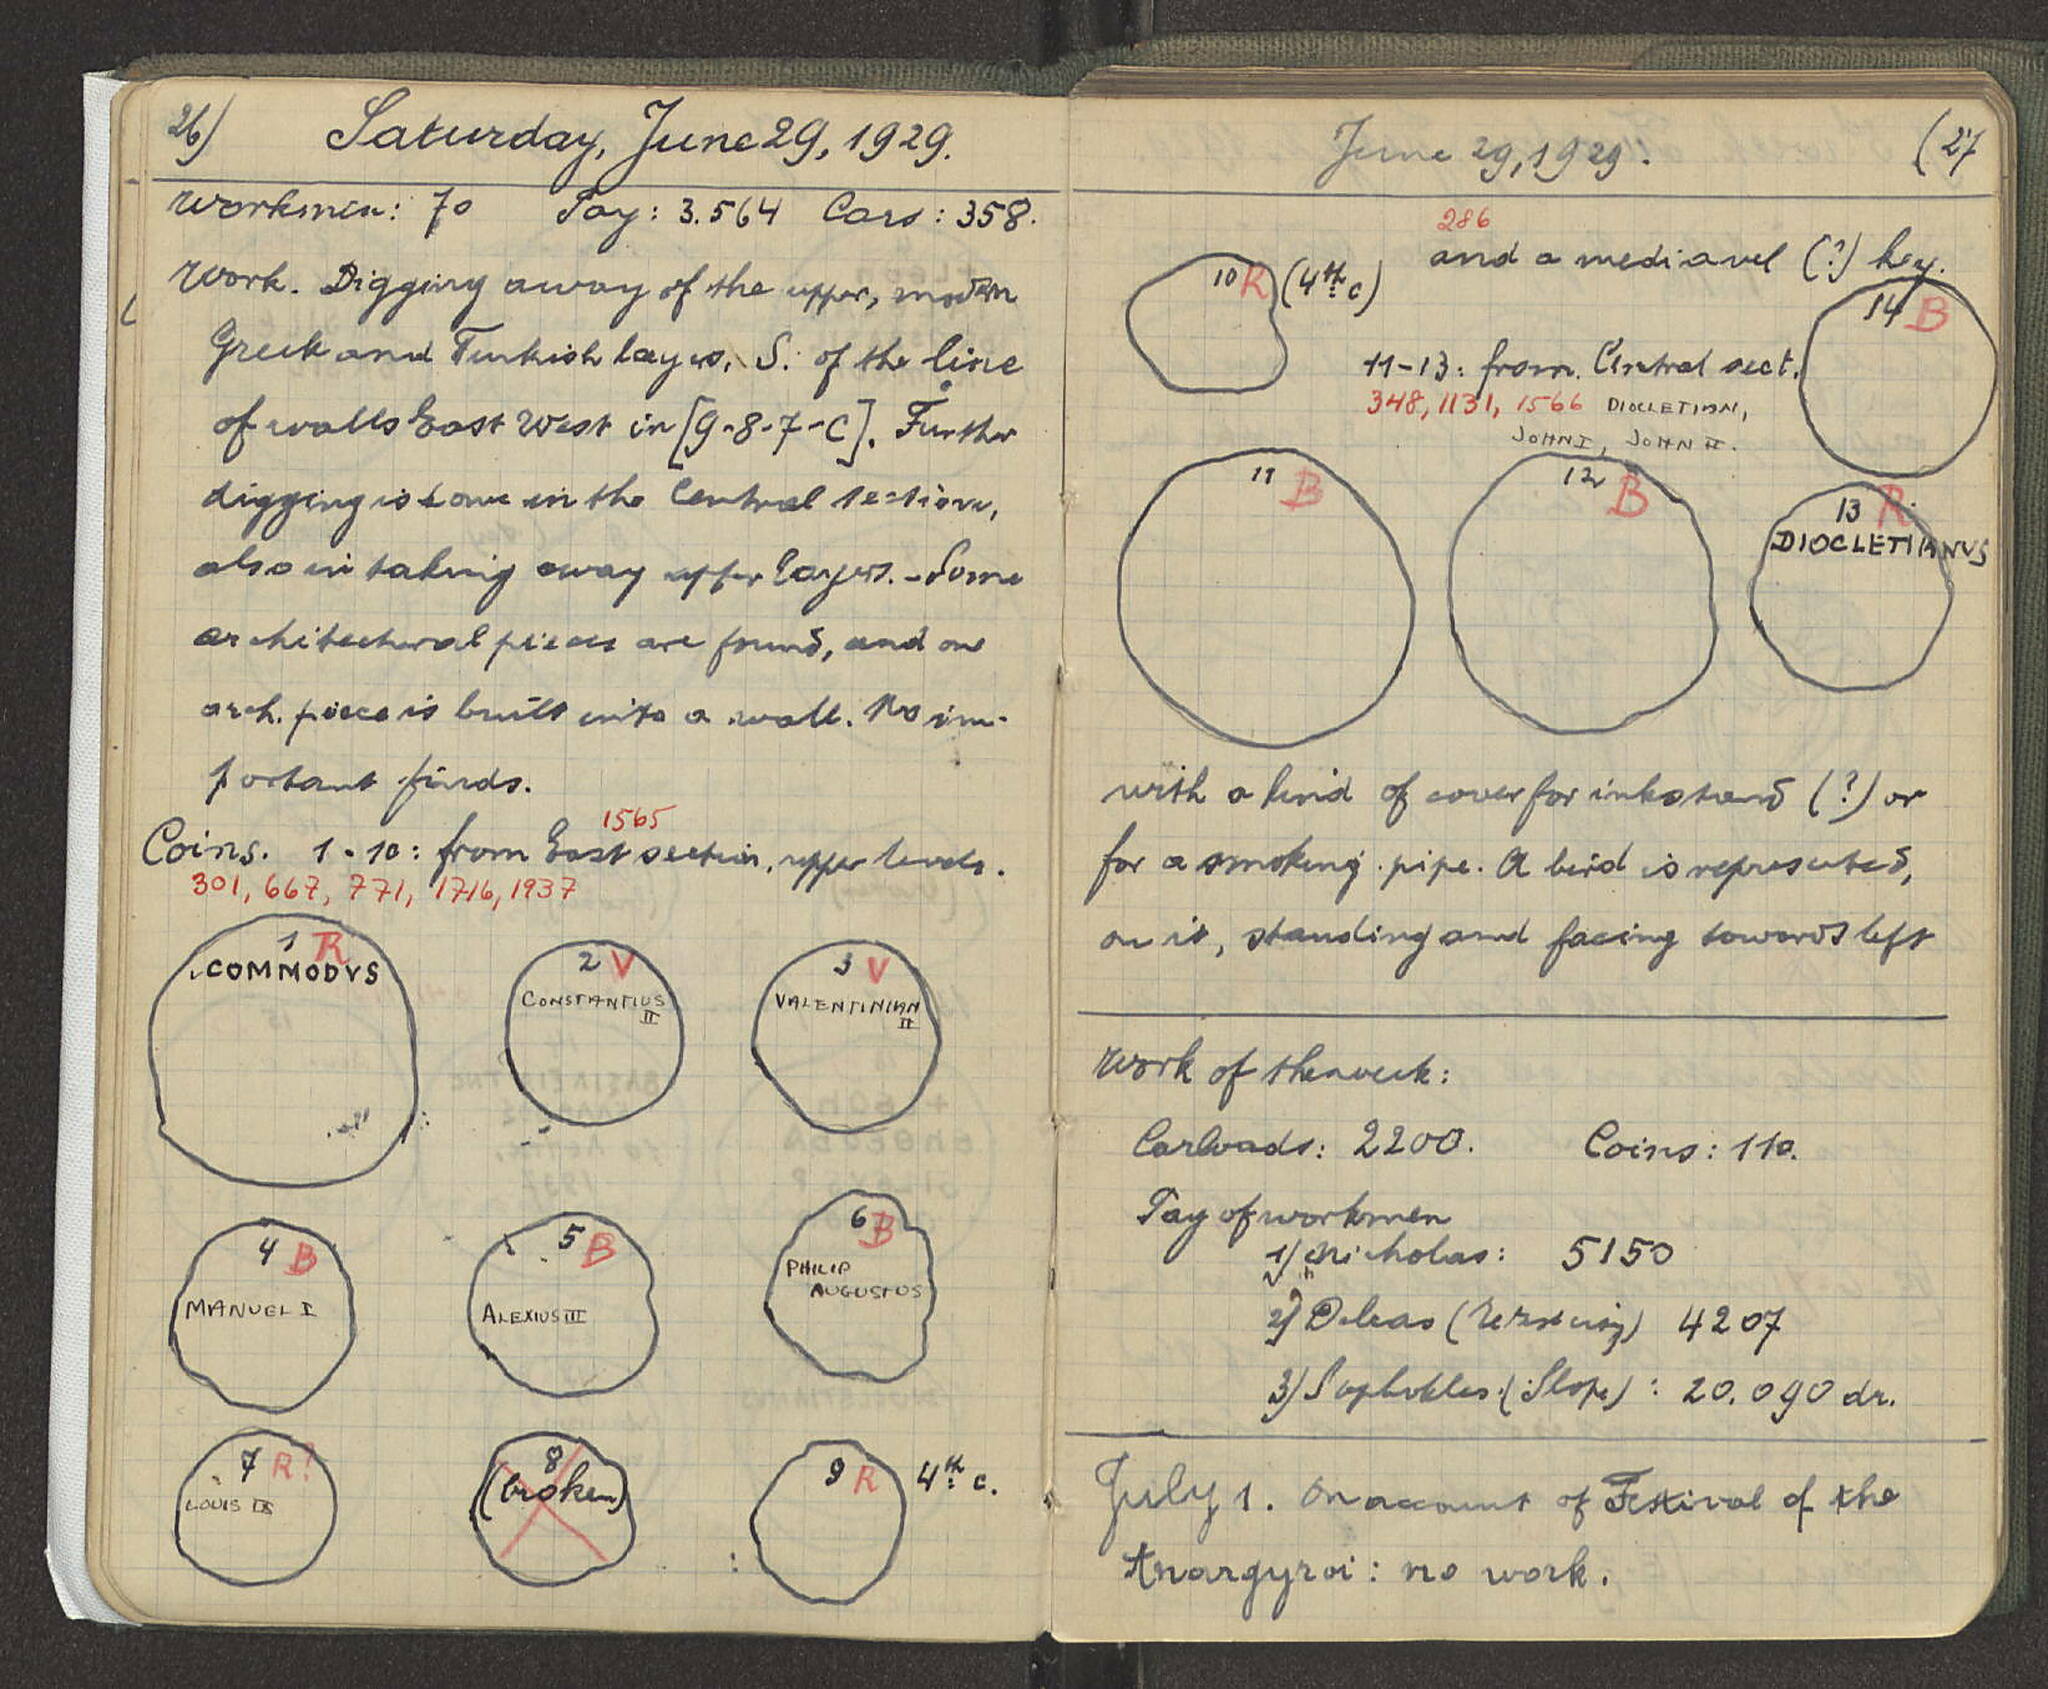 26)
Saturday, June 29, 1929.
Workmen: 70 Pay: 3.564 Cars: 358.
Work. Digging away of the upper, modern
Greek and Turkish layers, S. of the line
of walls East West in [9-8-7-C]. Further
digging is done in the Central section,
also in taking away upper layers. - Some
architectural pieces are found, and one
arch. piece is built into a wall. No im-
portant finds.
1565
Coins. 1-10: from East section, upper levels.
301, 667, 771, 1716, 1937
1 R
COMMODVS
2 V
CONSTANTIUS
II
3 V
VALENTINIAN
II
4 B
MANUEL I
5 B
ALEXIUS III
6 B
PHILIP
AUGUSTUS
7 R?
LOUIS IX
8
(broken)
9 R 4th c.
June 29, 1929.
(27
286
and a mediavel (?) key.
10 R (4th c)
14 B
11-13: from Central sect.
348, 1131, 1566 DIOCLETIAN,
JOHN I, JOHN II.
11 B
12 B
13 R
DIOCLETIANVS
with a kind of cover for inkstand (?) or
for a smoking pipe. A bird is represented,
on it, standing and facing towards left
Work of the week:
Carloads: 2200. Coins: 110.
Pay of workmen
1) Nicholas: 5150
2) Deleas 4207
3) Sophokles (Slope): 20.090 dr.
July 1. On account of Festival of the
Anargyroi: no work.